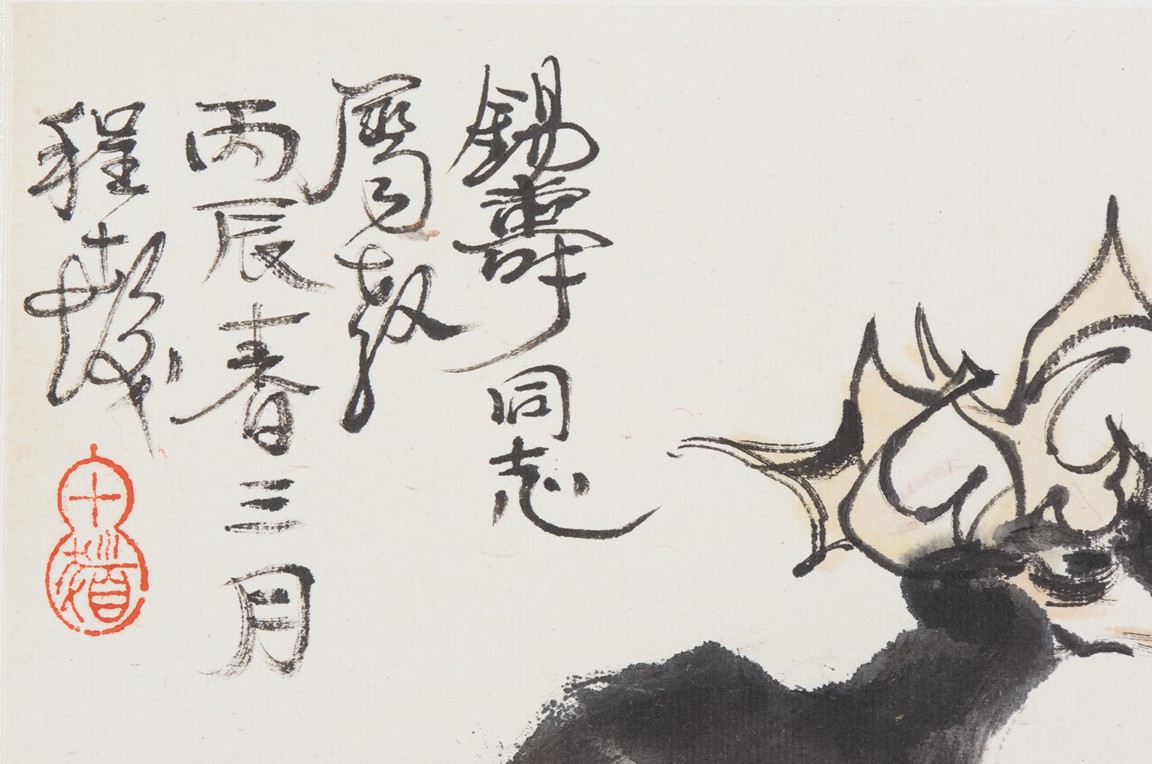 錫壽同志
屬教
丙辰春三月
程十髮
十髮